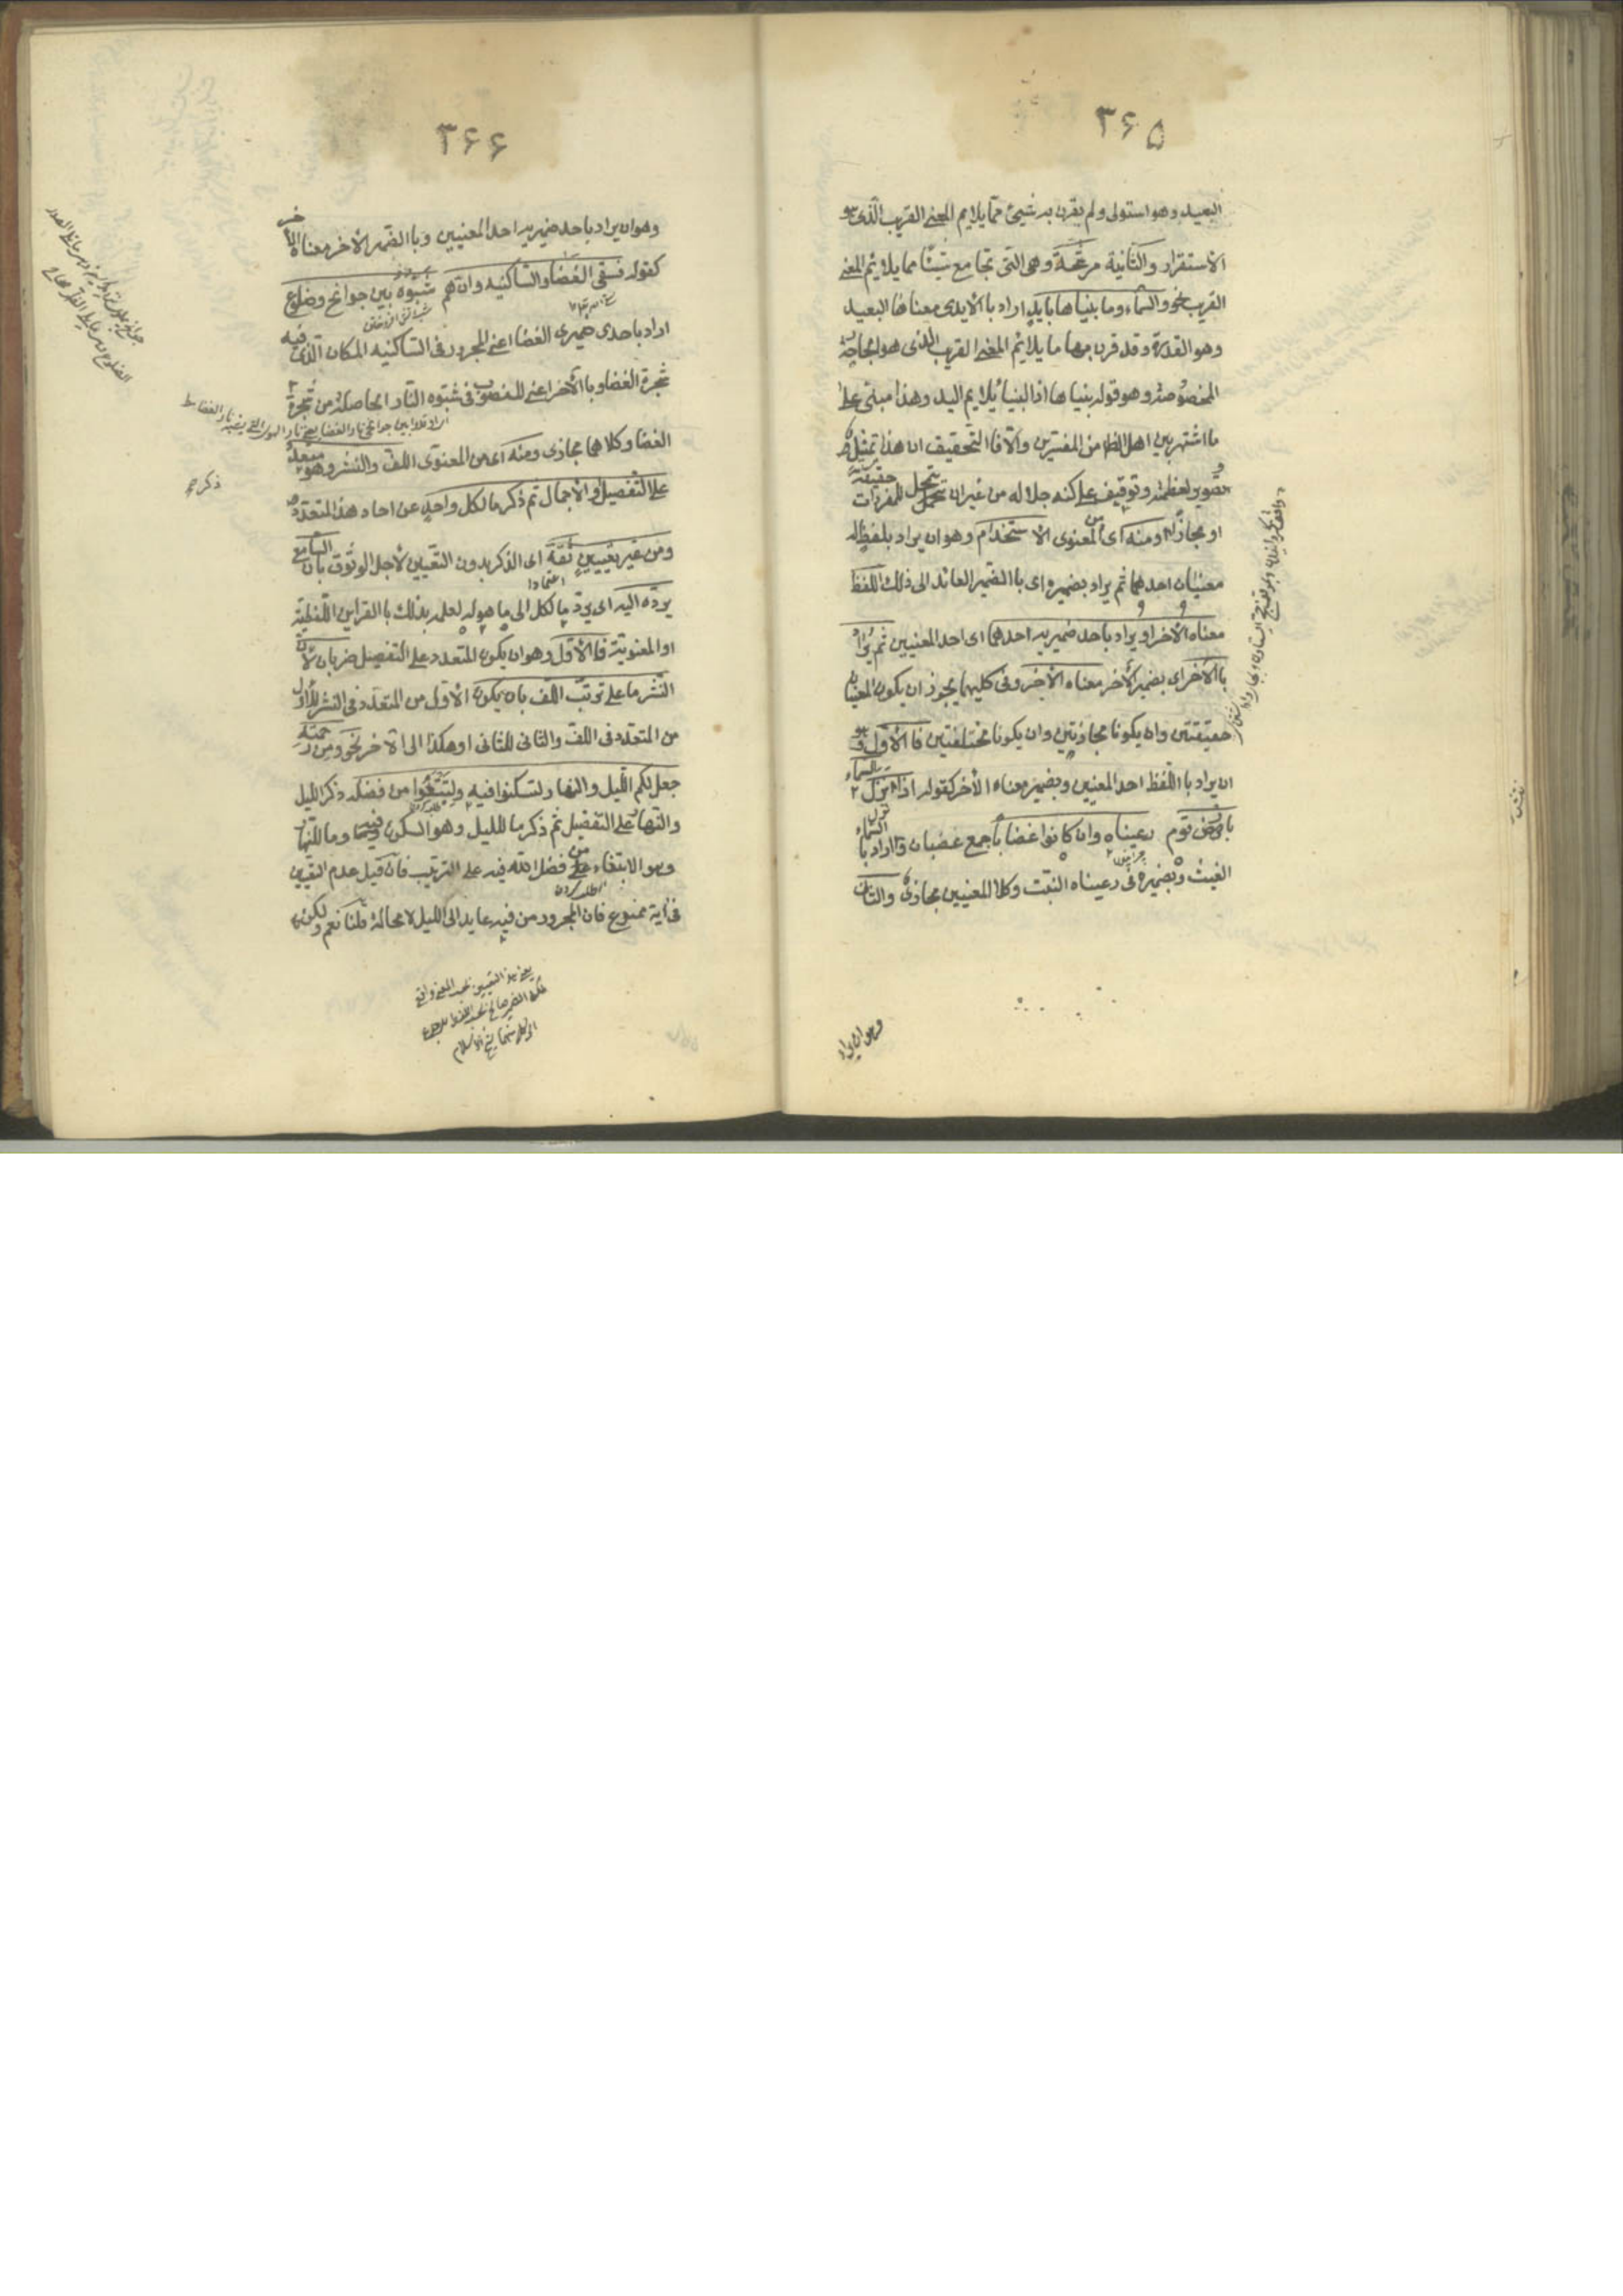 ٣۶۵
البعيد وهو استولى ولم يقرن به شيئ ممّا يلايم المعنى القريب الّذى هو
الاستقرار والثانية مرشّحة وهى التى تجامع شيئا مما يلائم المعنى
القريب نحو والسّماء وما بنيناها بايدٍ اراد با الايدى معناها البعيد
وهو القدرة وقد قرن بها ما يلائم المعنى القريب الّذى هو الجارحة
المخصوصة وهو قوله بنيناها اذ البنيا يلايم اليد وهذا مبنى على
ما اشتهر بين اهل الظاهر من المفسّرين والّا فا التّحقيق ان هذا تمثيل و
تصوير لعظمته وتوقيف على كنه جلاله من غير ان يتمحل للمفردات حقيقة
او مجازا ومنه اى من المعنوى الاستخدام وهو ان يراد بلفظ له
معنيان احدهما ثم يراد بضميره اى با الضمير العائد الى ذلك اللفظ
معناه الاخر او يراد باحد ضميريه احدهما اى احد المعنيين ثم يراد
با الآخر اى بضميره الآخر معناه الآخر وفى كليهما يجوز ان يكون المعنيان
حقيقتين وان يكونا مجازيّين وان يكونا مختلفتين فا الاوّل هو
ان يراد با اللّفظ احد المعنيين وبضميره معناه الآخر كقوله اذا نزل السّماء
بارض قوم رعيناه وان كانوا غضابا جمع غضبان اراد با السّماء
الغيث وبضميره فى رعيناه النّبت وكلا المعنيين مجازىّ والثّانى
وهو ان يراد
٣۶۶
وهو ان يراد باحد ضميريه احد المعنيين وبا الضّمير الآخر معناه الآخر
كقوله فسقى الغضا والسّاكنيه وان هم شبّوه بين جوانح وضلوع
اراد باحدى ضميرى الغضا اعنى المجرور فى السّاكنيه المكان الّذى فيه
شجرة الغضا وبا الآخر اعنى المنصوب فى شبّوه النّار الحاصلة من شجرة
الغضا وكلاهما مجازى ومنه اى من المعنوى اللّف والنّشر وهو ذكر متعدّد
على التّفصيل او الاجمال ثم ذكر ما لكل واحدٍ من احاد هذا المتعدّد
ومن غير تعيين ثقة اى الذكر بدون التّعيين لاجل الوثوق بان السّامع
يردّه اليه اى يردّ ما لكل الى ما هو له لعلمه بذلك با القراين اللّفظيّة
او المعنويّة فا الاوّل وهو ان يكون المتعدد على التّفصيل ضربان لانّ
النّشر ما على ترتيب اللّف بان يكون الاوّل من المتعدّد فى النشر للاوّل
من المتعدد فى اللّف والثانى للثانى وهكذا الى الآخر نحو ومن رحمته
جعل لكم اللّيل والنهار لتسكنوا فيه ولتبتغوا من فضله ذكر الليل
والنّهار على التّفصيل ثم ذكر ما لليل وهو السّكون فيه وما للنّهار
وهو الابتغاء من فضل الله فيه على الترتيب فان قيل عدم التّعيين
فى الآية ممنوع فان المجرور من فيه عايد الى الليل لا محالة قلنا نعم ولكن